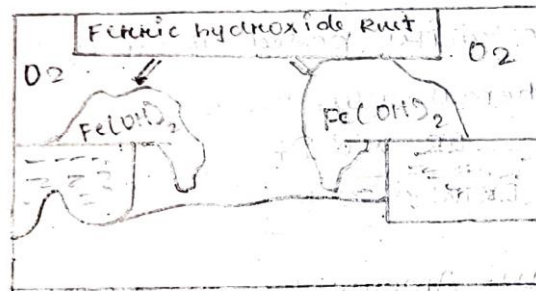 Ferric hydroxide Rust
O2
O2
Fe(OH)2
Fe(OH)2